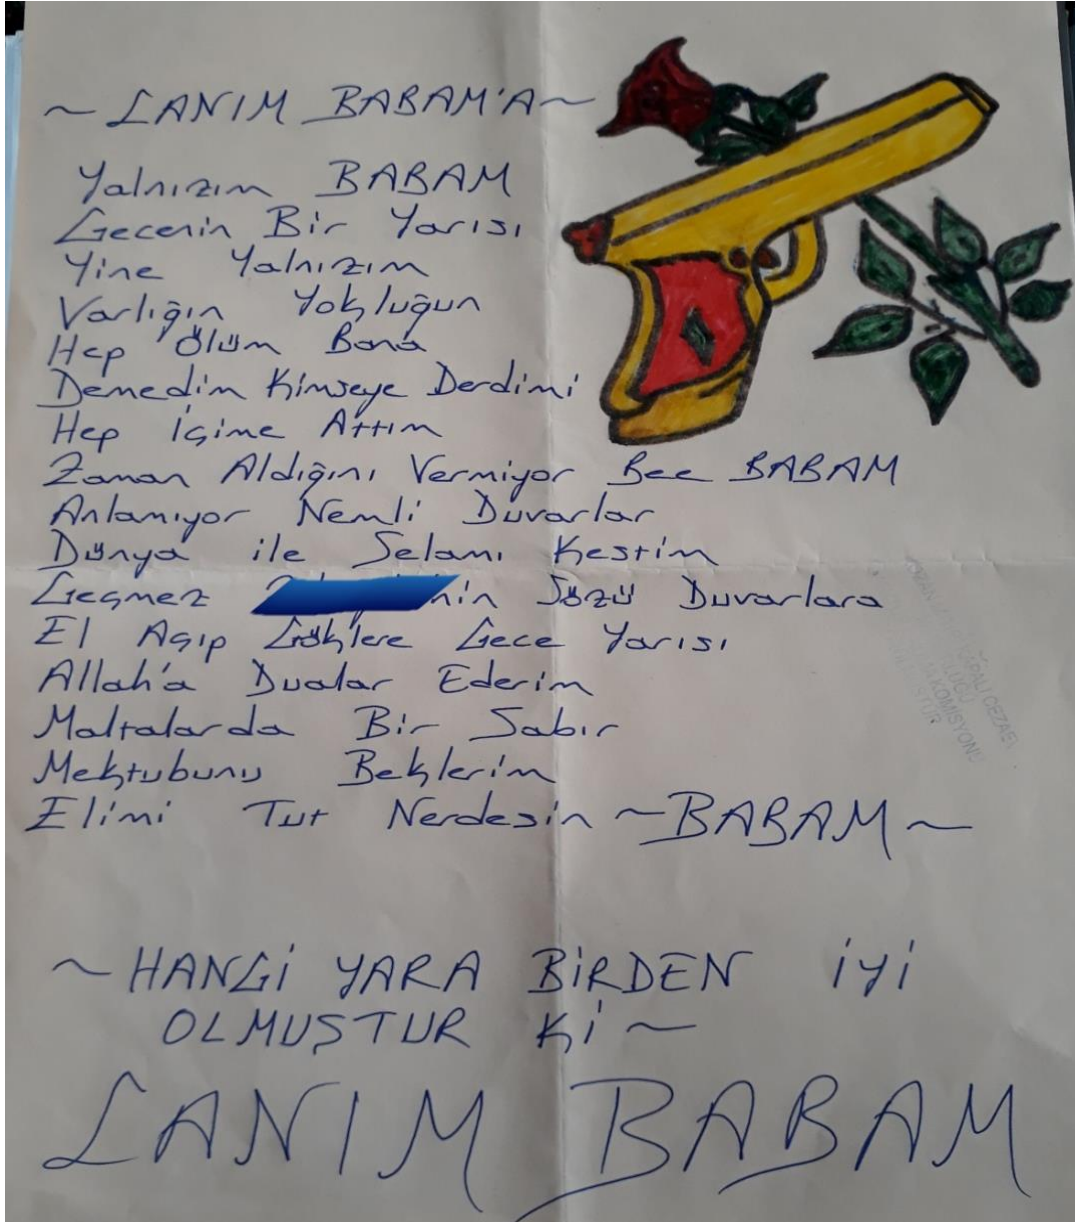 ~ CANIM BABAM'A ~
Yalnızım BABAM
Gecenin Bir Yarısı
Yine Yalnızım
Varlığın Yokluğun
Hep Ölüm Bana
Demedim Kimseye Derdimi
Hep İçime Attım
Zaman Aldığını Vermiyor Bee BABAM
Anlamıyor Nemli Duvarlar
Dünya ile Selamı Kestim
Geçmez Sözü Duvarlara
El Açıp Göklere Gece Yarısı
Allah'a Dualar Ederim
Maltalarda Bir Sabır
Mektubunu Beklerim
Elimi Tut Nerdesin ~ BABAM ~
~ HANGİ YARA BİRDEN İYİ
OLMUŞTUR Kİ ~
CANIM BABAM